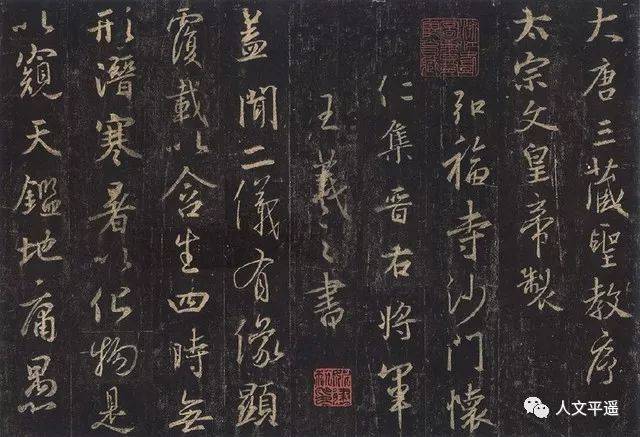 大唐三藏聖教序
太宗文皇帝製
弘福寺沙門懷
仁集晉右將軍
王羲之書
蓋聞二儀有像顯
覆載以含生四時無
形潛寒暑以化物是
以窺天鑑地庸愚
人文平遥